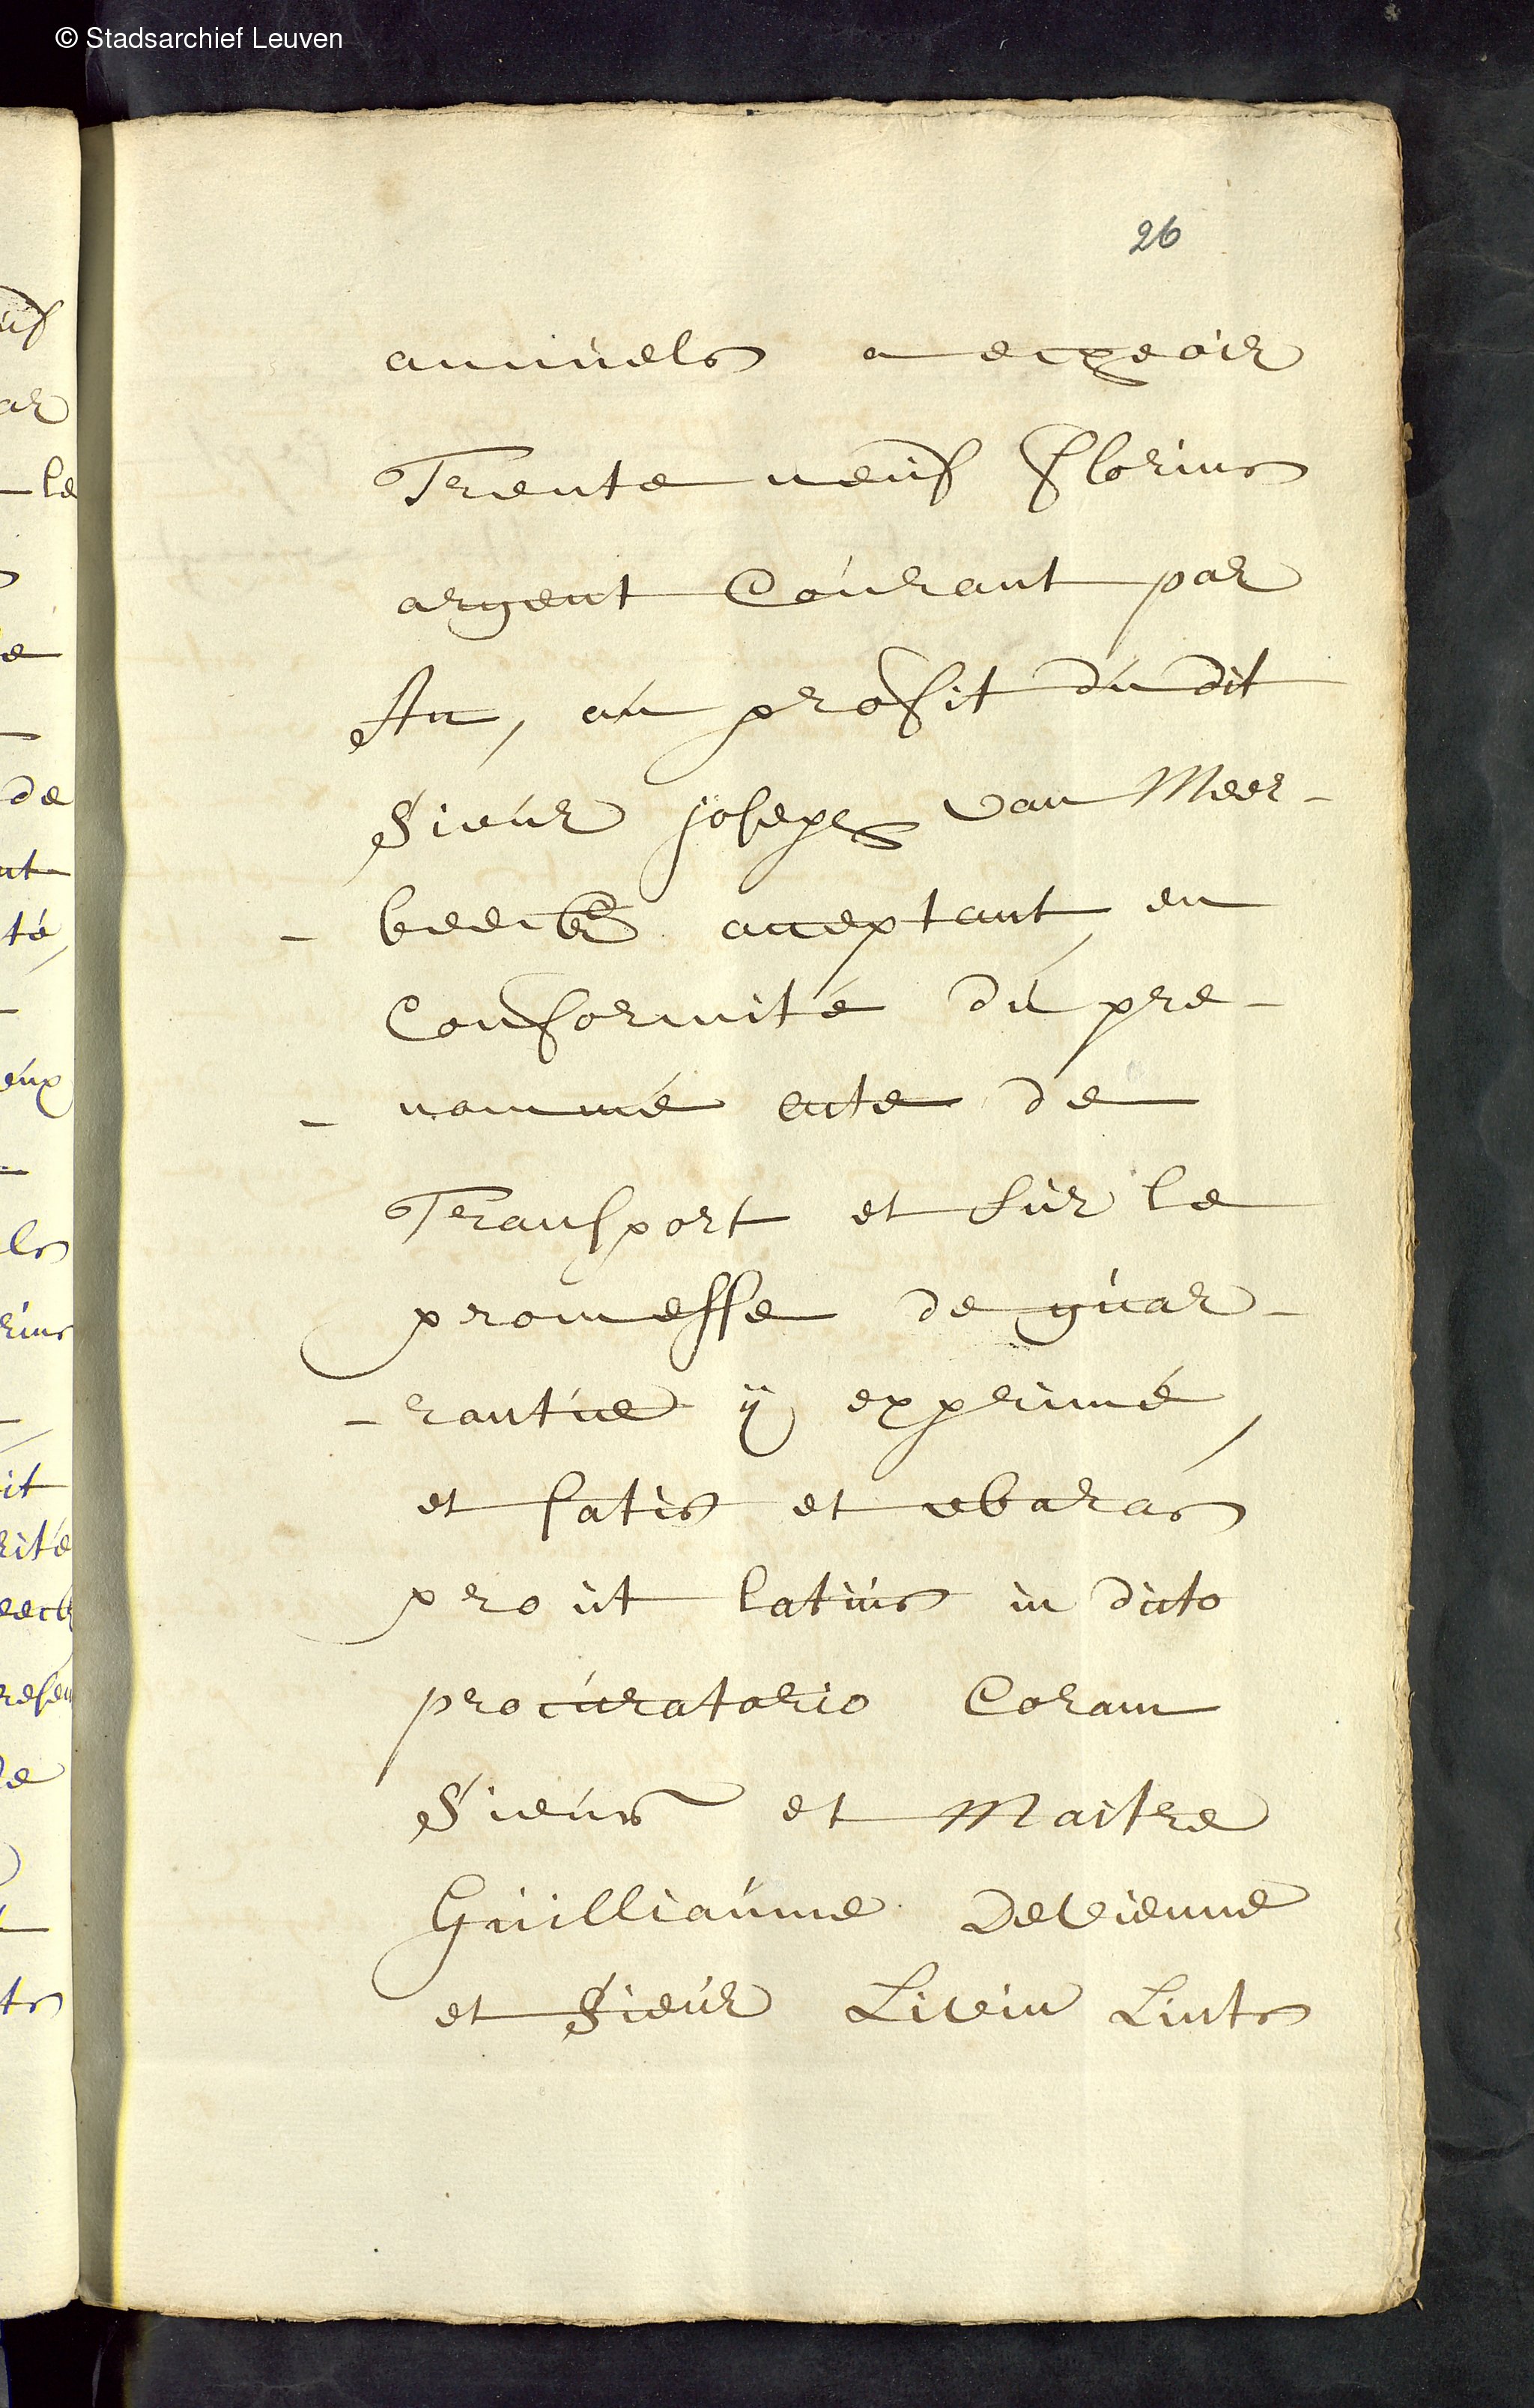 © Stadsarchief Leuven
26
annuels a echeoir
Trente neuf florins
argent Courant par
An, au profit du dit
Sieur joseph van Meer-
- beeck acceptant, en
Conformité du pre-
- nommé acte de
Transport et sur le
promesse de guar-
- rantie ÿ exprimé,
et satis et obaras
pro ut latius in dicto
procuratorio Coram
Sieurs et Maitre
Guilliaume Devienne
et Sieur Livin Lints